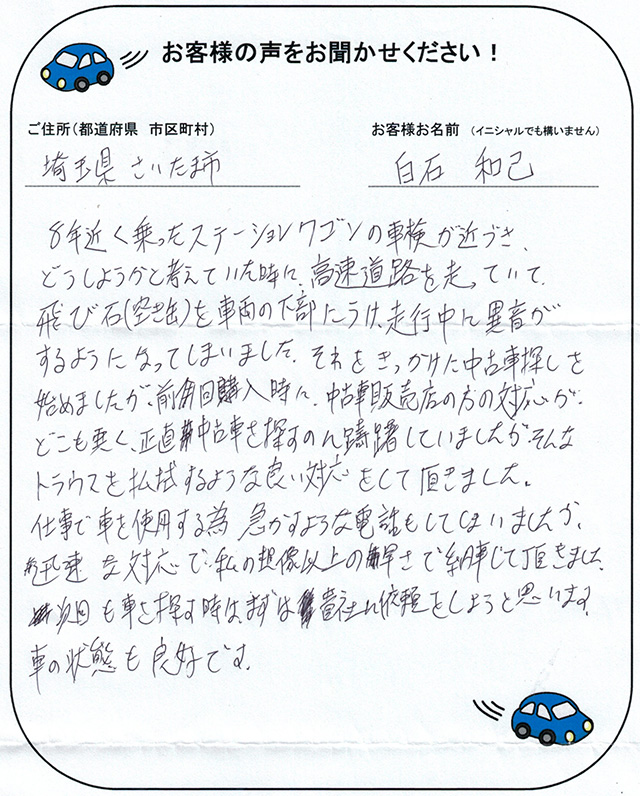 お客様の声をお聞かせください！
ご住所（都道府県　市区町村）
お客様お名前　（イニシャルでも構いません）
埼玉県 さいたま市
白石　和己
8年近く乗ったステーションワゴンの車検が近づき、
どうしようかと考えていた時に、高速道路を走っていて、
飛び石(空き缶)を車両の下部にうけ、走行中に異音が
するようになってしまいました。それをきっかけに中古車探しを
始めましたが、前回購入時に、中古車販売店の方の対応が、
どこも悪く、正直中古車を探すのに躊躇していましたが、そんな
トラウマを払拭するような良い対応をして頂きました。
仕事で車を使用する為 急かすような電話もしてしまいましたが、
迅速な対応で、私の想像以上の早さで納車して頂きました。
次回も車を探す時はまずは貴社に依頼をしようと思います。
車の状態も良好です。